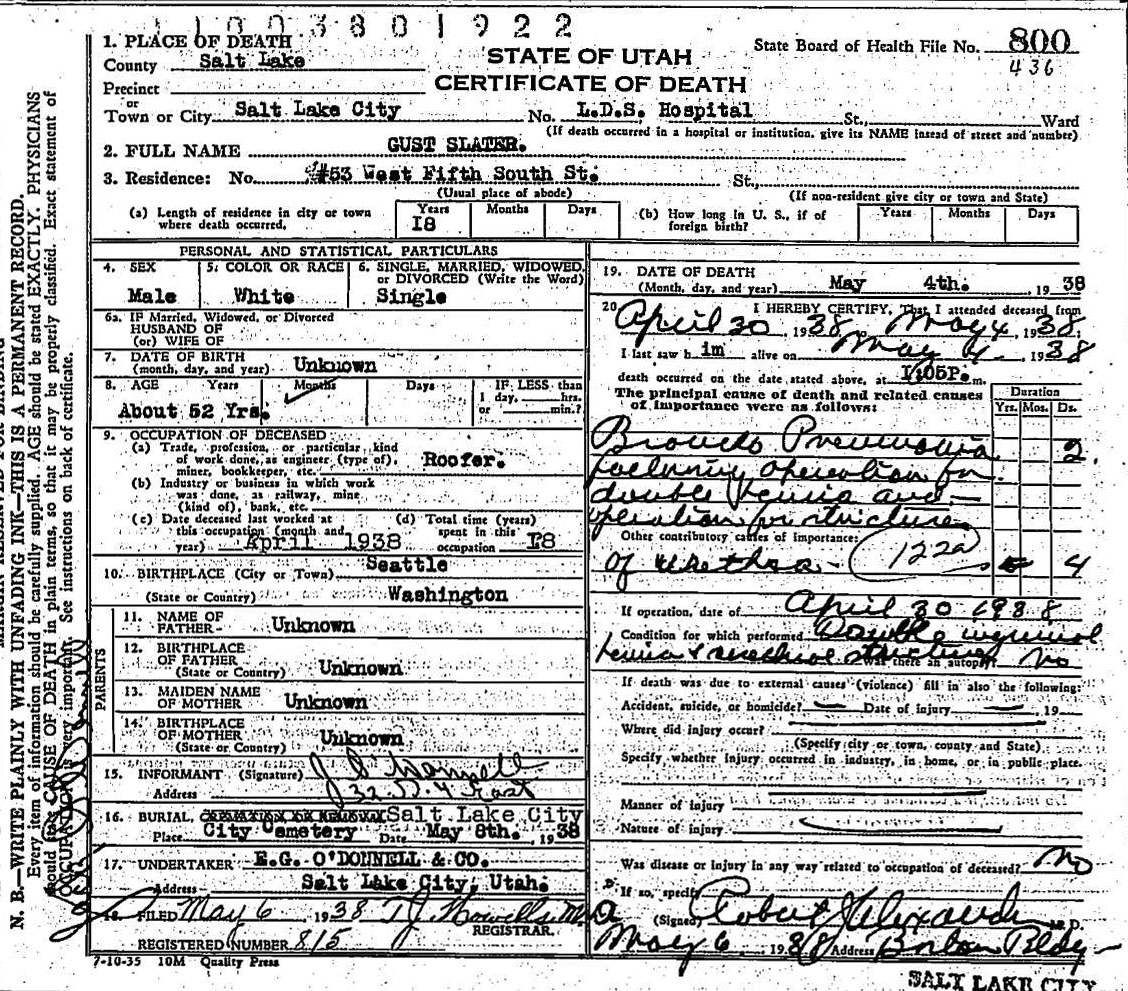 11003801922
1. PLACE OF DEATH
County Salt Lake
STATE OF UTAH
CERTIFICATE OF DEATH
State Board of Health File No. 800
436
Precinct
or
Town or City Salt Lake City No. L.D.S. Hospital St., Ward
(If death occurred in a hospital or institution, give its NAME instead of street and number)
2. FULL NAME GUST SLATER.
3. Residence: No. #53 West Fifth South St. St.,
(Usual place of abode) (If non-resident give city or town and State)
(a) Length of residence in city or town where death occurred. Years I8 Months Days (b) How long in U. S., if of foreign birth? Years Months Days
PERSONAL AND STATISTICAL PARTICULARS
4. SEX Male
5. COLOR OR RACE White
6. SINGLE, MARRIED, WIDOWED, or DIVORCED (Write the Word) Single
6a. IF Married, Widowed, or Divorced
HUSBAND OF
(or) WIFE OF
7. DATE OF BIRTH
(month, day, and year) Unknown
8. AGE Years Months Days IF LESS than
1 day, hrs.
or min.?
About 52 Yrs.
9. OCCUPATION OF DECEASED
(a) Trade, profession, or particular kind
of work done, as engineer (type of),
miner, bookkeeper, etc. Roofer.
(b) Industry or business in which work
was done, as railway, mine
(kind of), bank, etc.
(c) Date deceased last worked at this occupation (month and year) April 1938
(d) Total time (years) spent in this occupation I8
10. BIRTHPLACE (City or Town) Seattle
(State or Country) Washington
PARENTS
11. NAME OF
FATHER Unknown
12. BIRTHPLACE
OF FATHER
(State or Country) Unknown
13. MAIDEN NAME
OF MOTHER Unknown
14. BIRTHPLACE
OF MOTHER
(State or Country) Unknown
15. INFORMANT (Signature)
Address
16. BURIAL, CREMATION OR REMOVAL Salt Lake City
Place City Cemetery Date May 8th. , 1938
17. UNDERTAKER E.G. O'DONNELL & CO.
Address Salt Lake City, Utah.
18. FILED May 6 1938 T J Howells M D
REGISTRAR.
REGISTERED NUMBER 815
7-10-35 10M Quality Press
19. DATE OF DEATH
(Month, day, and year) May 4th. , 1938
20 I HEREBY CERTIFY, That I attended deceased from
April 30, 1938, May 4, 1938,
I last saw him alive on May 4, 1938
death occurred on the date stated above, at I:05P. m.
The principal cause of death and related causes
of importance were as follows:
Duration
Yrs. Mos. Ds.
Broncho Pneumonia 2.
following operation for
double hernia and
operation for stricture
Other contributory causes of importance:
of urethra - 122a 4
If operation, date of April 30 1938
Condition for which performed Double inguinal
hernia & urethral stricture Was there an autopsy No
If death was due to external causes (violence) fill in also the following:
Accident, suicide, or homicide? Date of injury 19
Where did injury occur?
(Specify city or town, county and State)
Specify whether injury occurred in industry, in home, or in public place.
Manner of injury
Nature of injury
Was disease or injury in any way related to occupation of deceased? No
If so, specify
(Signed) Robert Alexander M. D.
May 6, 1938 Address Boston Bldg
SALT LAKE CITY
N. B.—WRITE PLAINLY WITH UNFADING INK—THIS IS A PERMANENT RECORD.
Every item of information should be carefully supplied. AGE should be stated EXACTLY. PHYSICIANS
should state CAUSE OF DEATH in plain terms, so that it may be properly classified. Exact statement of
OCCUPATION is very important. See instructions on back of certificate.